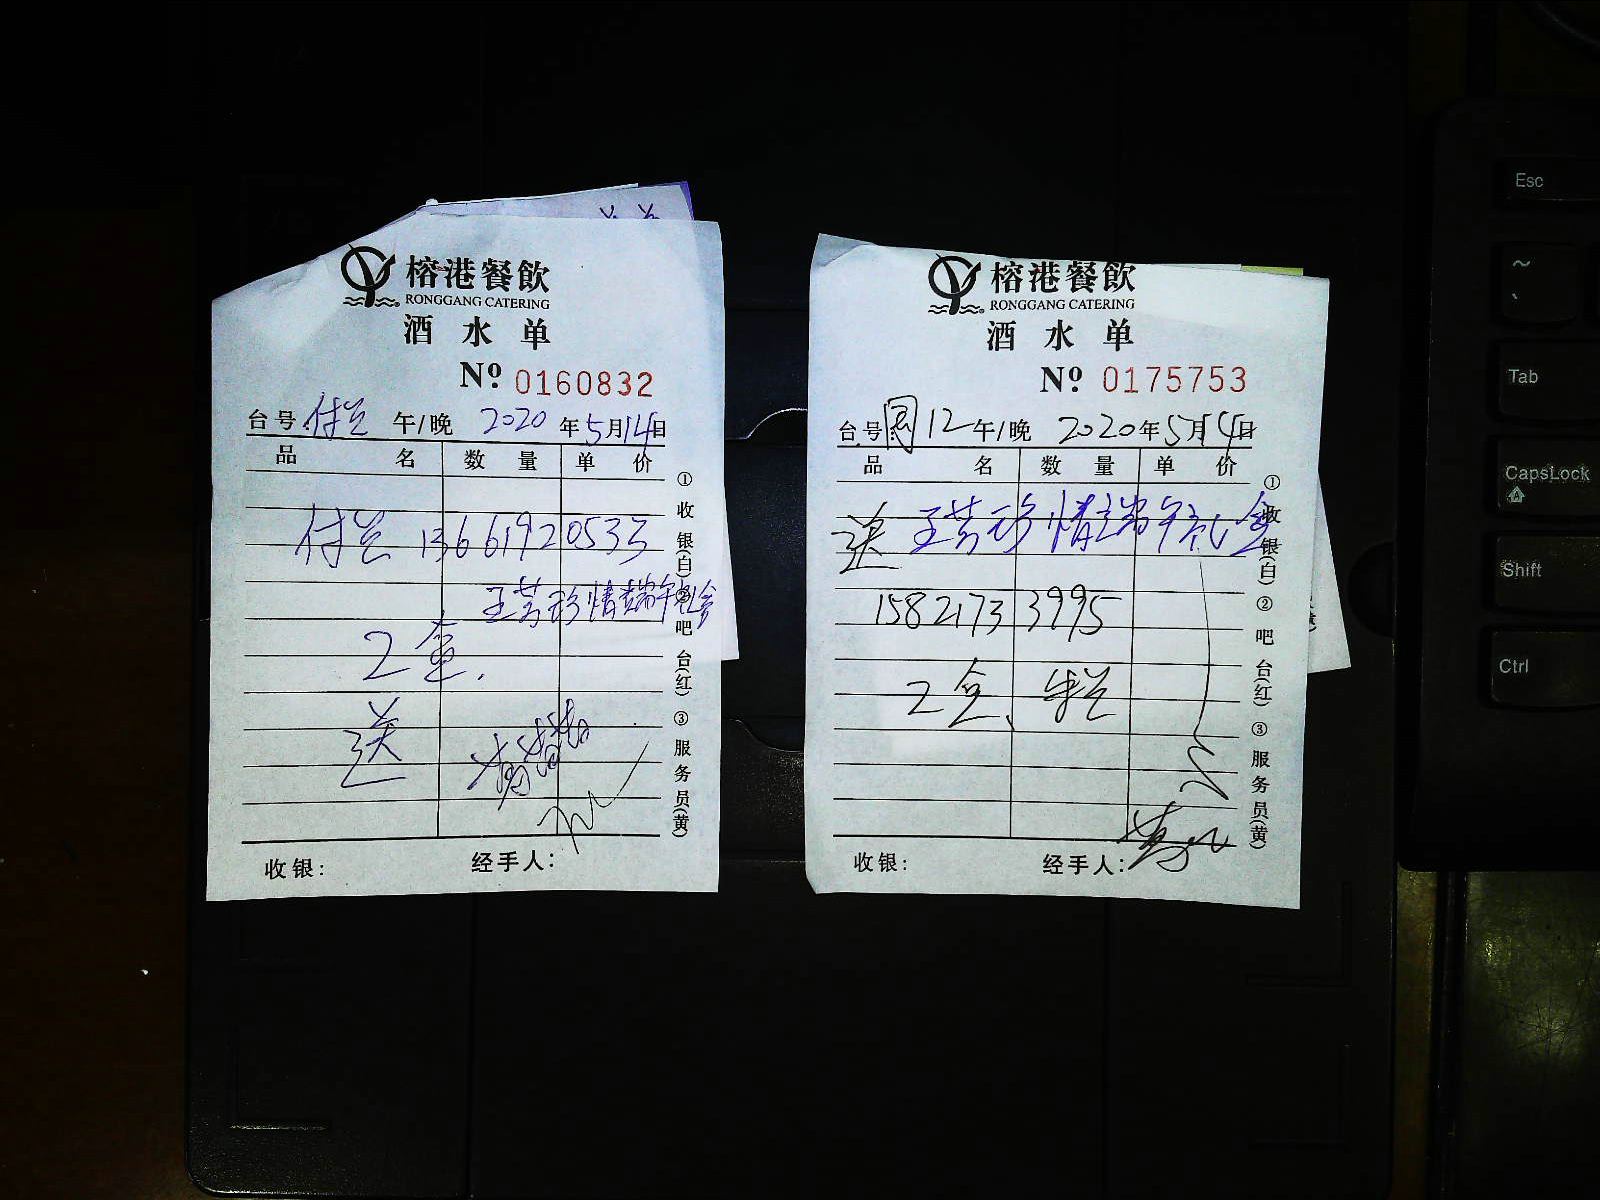 榕港餐飲
RONGGANG CATERING
酒水单
Nº 0160832
台号 付兰 午/晚 2020年5月14日
品名 数量 单价
付兰 13661920533
王芳珍情端午礼盒
2盒.
送
收银: 经手人:
①收银(白)②吧台(红)③服务员(黄)
榕港餐飲
RONGGANG CATERING
酒水单
Nº 0175753
台号 12 午/晚 2020年5月14日
品名 数量 单价
送 王芳珍情端午礼盒
15821733995
2盒、
收银: 经手人:
①收银(白)②吧台(红)③服务员(黄)
Esc
~
Tab
CapsLock
Shift
Ctrl